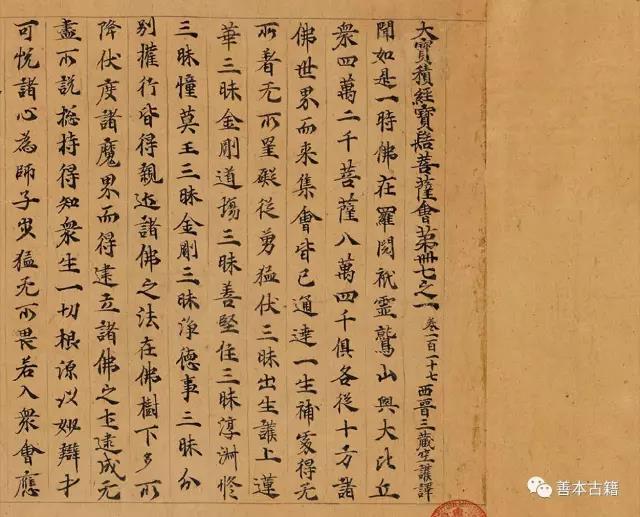 大寶積經寶髻菩薩會第卌七之一 卷一百一十七 西晋三藏竺護譯
聞如是一時佛在羅閱祇靈鷲山與大比丘
衆四萬二千菩薩八萬四千俱各從十方諸
佛世界而来集會皆已通達一生補處得无
所著无所罣礙從勇猛伏三昧出生離上蓮
華三昧金剛道場三昧善堅住三昧淳洲修
三昧幢莫王三昧金剛三昧淨德事三昧分
別權行皆得親近諸佛之法在佛樹下多所
降伏度諸魔界而得建立諸佛之土逮成无
盡所説捴持得知衆生一切根源以妙辯才
可悦諸心為師子吼猛无所畏若入衆會應
善本古籍